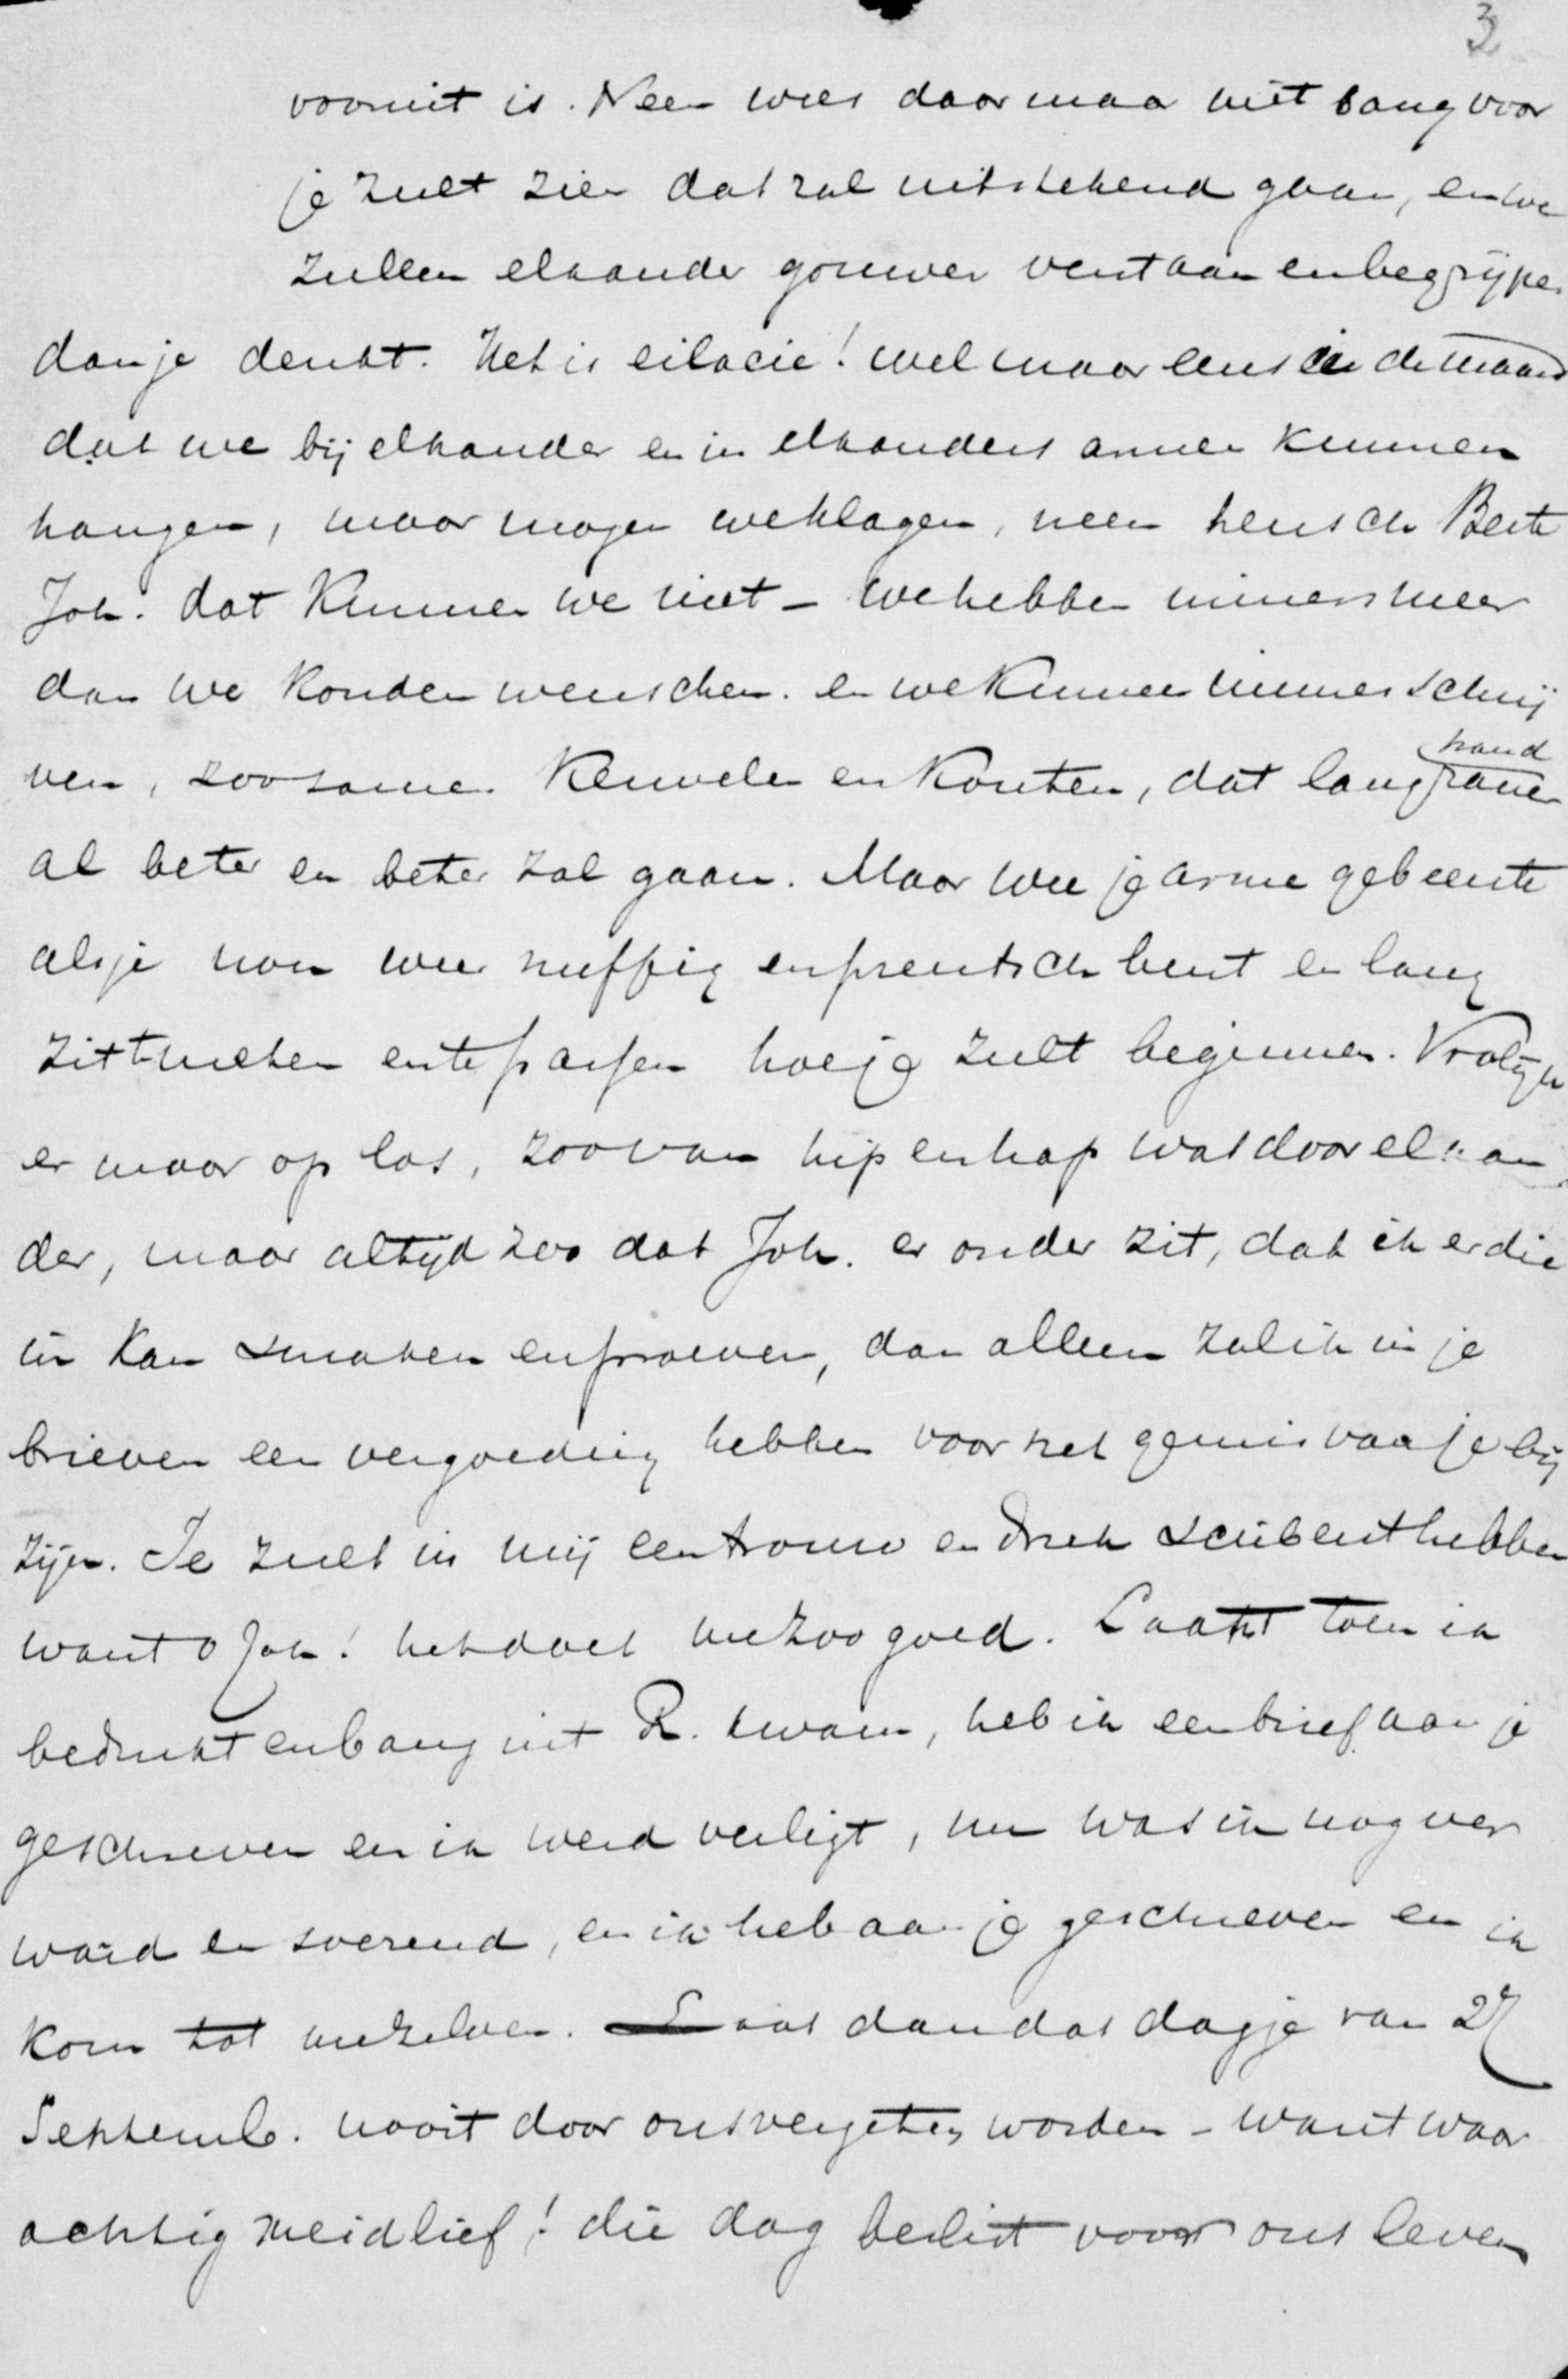 3
vooruit is. Neen wees daar maar niet bang voor
je zult zien dat zal uitstekend gaan, en we
zullen elkander gouwer verstaan en begrijpen
dan je denkt. Het is eilacie! wel maar eens in de maand
dat we bij elkander en in elkanders armen kunnen
hangen, maar mogen weklagen, neen heusch Beste
Joh. dat kunnen we niet – we hebben immers meer
dan we konden wenschen. en we kunnen immers schrij
ven, zoo samen keuvelen en kouten, dat langzamer
hand
al beter en beter zal gaan. Maar wee je arme gebeente
als je nou weer nuffig en preutsch bent en lang
zit te en te hoe je zult beginnen. Vrolijk
er maar op los, zoo van hip en hap wat door elkan
der, maar altijd zoo dat Joh. er onder zit, dat ik er die
in kan smaken en proeven, dan alleen zal ik in je
brieven een vergoeding hebben voor het gemis van je bij
zijn. Je zult in mij een trouw en druk scribent hebben
want o Joh! het doet me zoo goed. Laatst toen ik
bedrukt en bang uit R. kwam, heb ik een brief aan je
geschreven en ik werd verligt, nu was ik nog ver
ward en , en ik heb aan je geschreven en ik
kom tot mezelven. Laat dan dat dagje van 27
Septemb. nooit door ons vergeten worden – want waar
achtig meidlief! die dag beslist voor ons leven